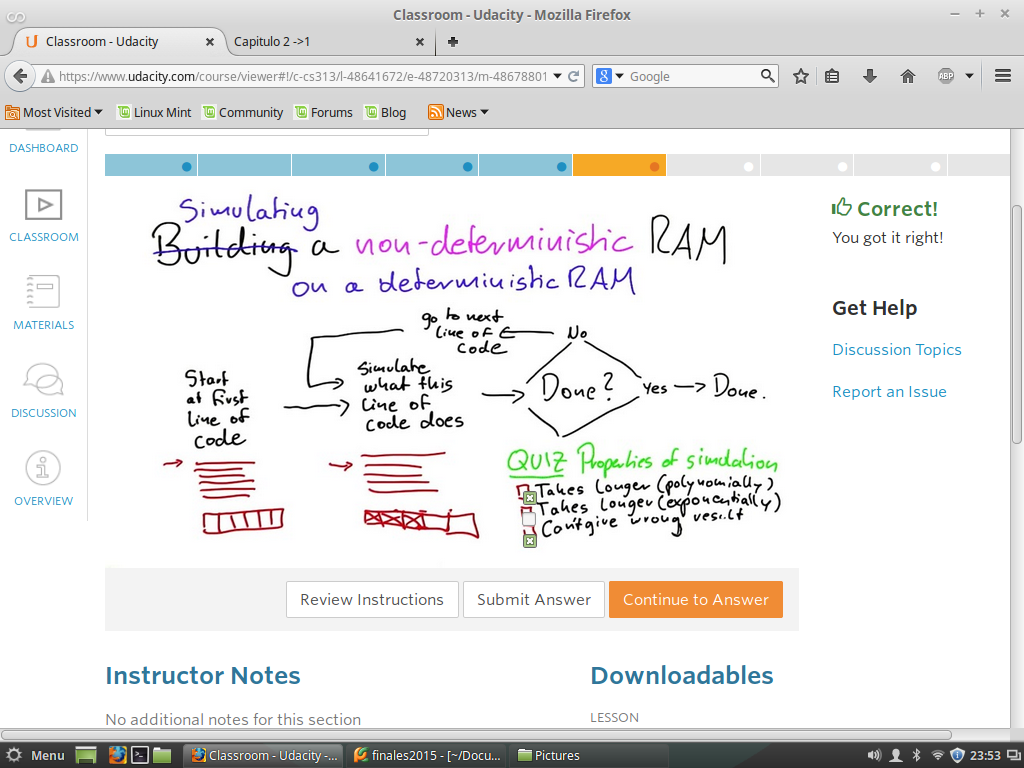 Classroom - Udacity - Mozilla Firefox
Classroom - Udacity
Capitulo 2 ->1
https://www.udacity.com/course/viewer#!/c-cs313/l-48641672/e-48720313/m-48678801
Google
ABP
Most Visited
Linux Mint
Community
Forums
Blog
News
DASHBOARD
CLASSROOM
MATERIALS
DISCUSSION
OVERVIEW
Simulating
Building a non-deterministic RAM
on a deterministic RAM
go to next
line of
code
No
Start
at first
line of
code
Simulate
what this
line of
code does
Done?
Yes
Done.
QUIZ Properties of simulation
Takes longer (polynomially)
Takes longer (exponentially)
Can't give wrong result
Correct!
You got it right!
Get Help
Discussion Topics
Report an Issue
Review Instructions
Submit Answer
Continue to Answer
Instructor Notes
No additional notes for this section
Downloadables
LESSON
Menu
Classroom - Udacity -...
finales2015 - [~/Docu...
Pictures
23:53